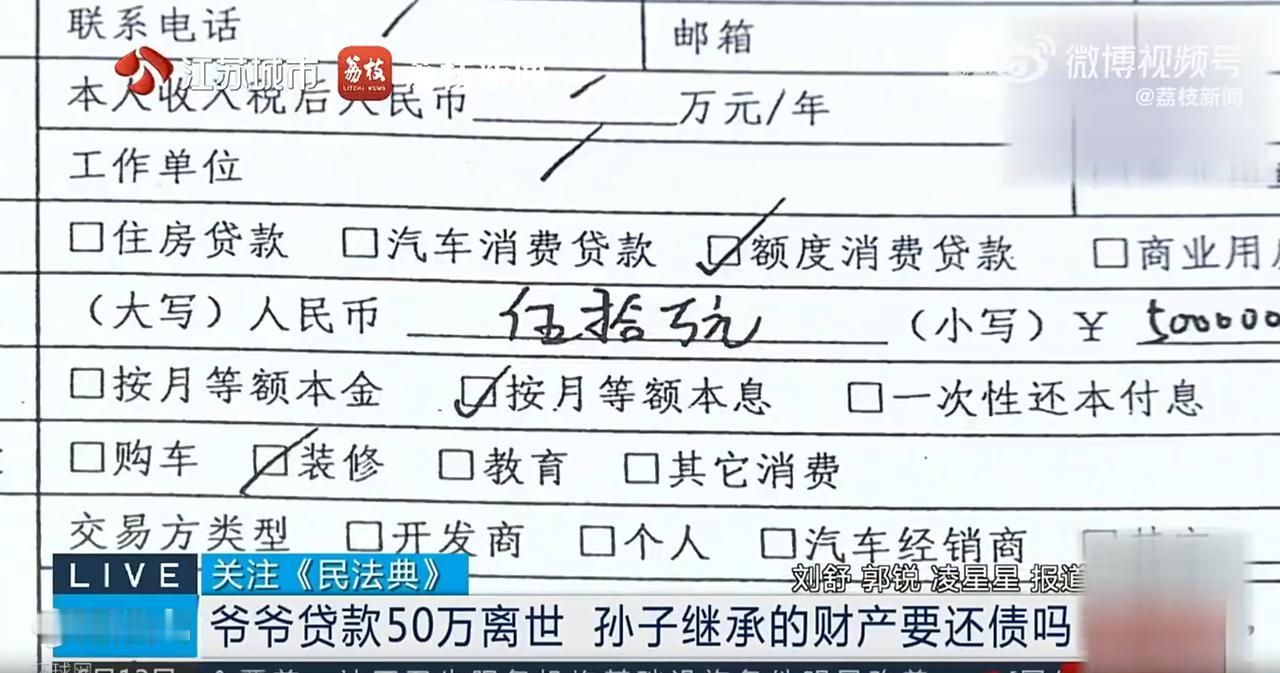 联系电话 邮箱
江苏城市 荔枝 LITCHI NEWS 微博视频号
@荔枝新闻
本人收入税后人民币 万元/年
工作单位
□住房贷款 □汽车消费贷款 ☑额度消费贷款 □商业用
(大写)人民币 伍拾万元 (小写)¥ 500000
□按月等额本金 ☑按月等额本息 □一次性还本付息
□购车 ☑装修 □教育 □其它消费
交易方类型 □开发商 □个人 □汽车经销商
LIVE 关注《民法典》 刘舒 郭锐 凌星星 报道
爷爷贷款50万离世 孙子继承的财产要还债吗